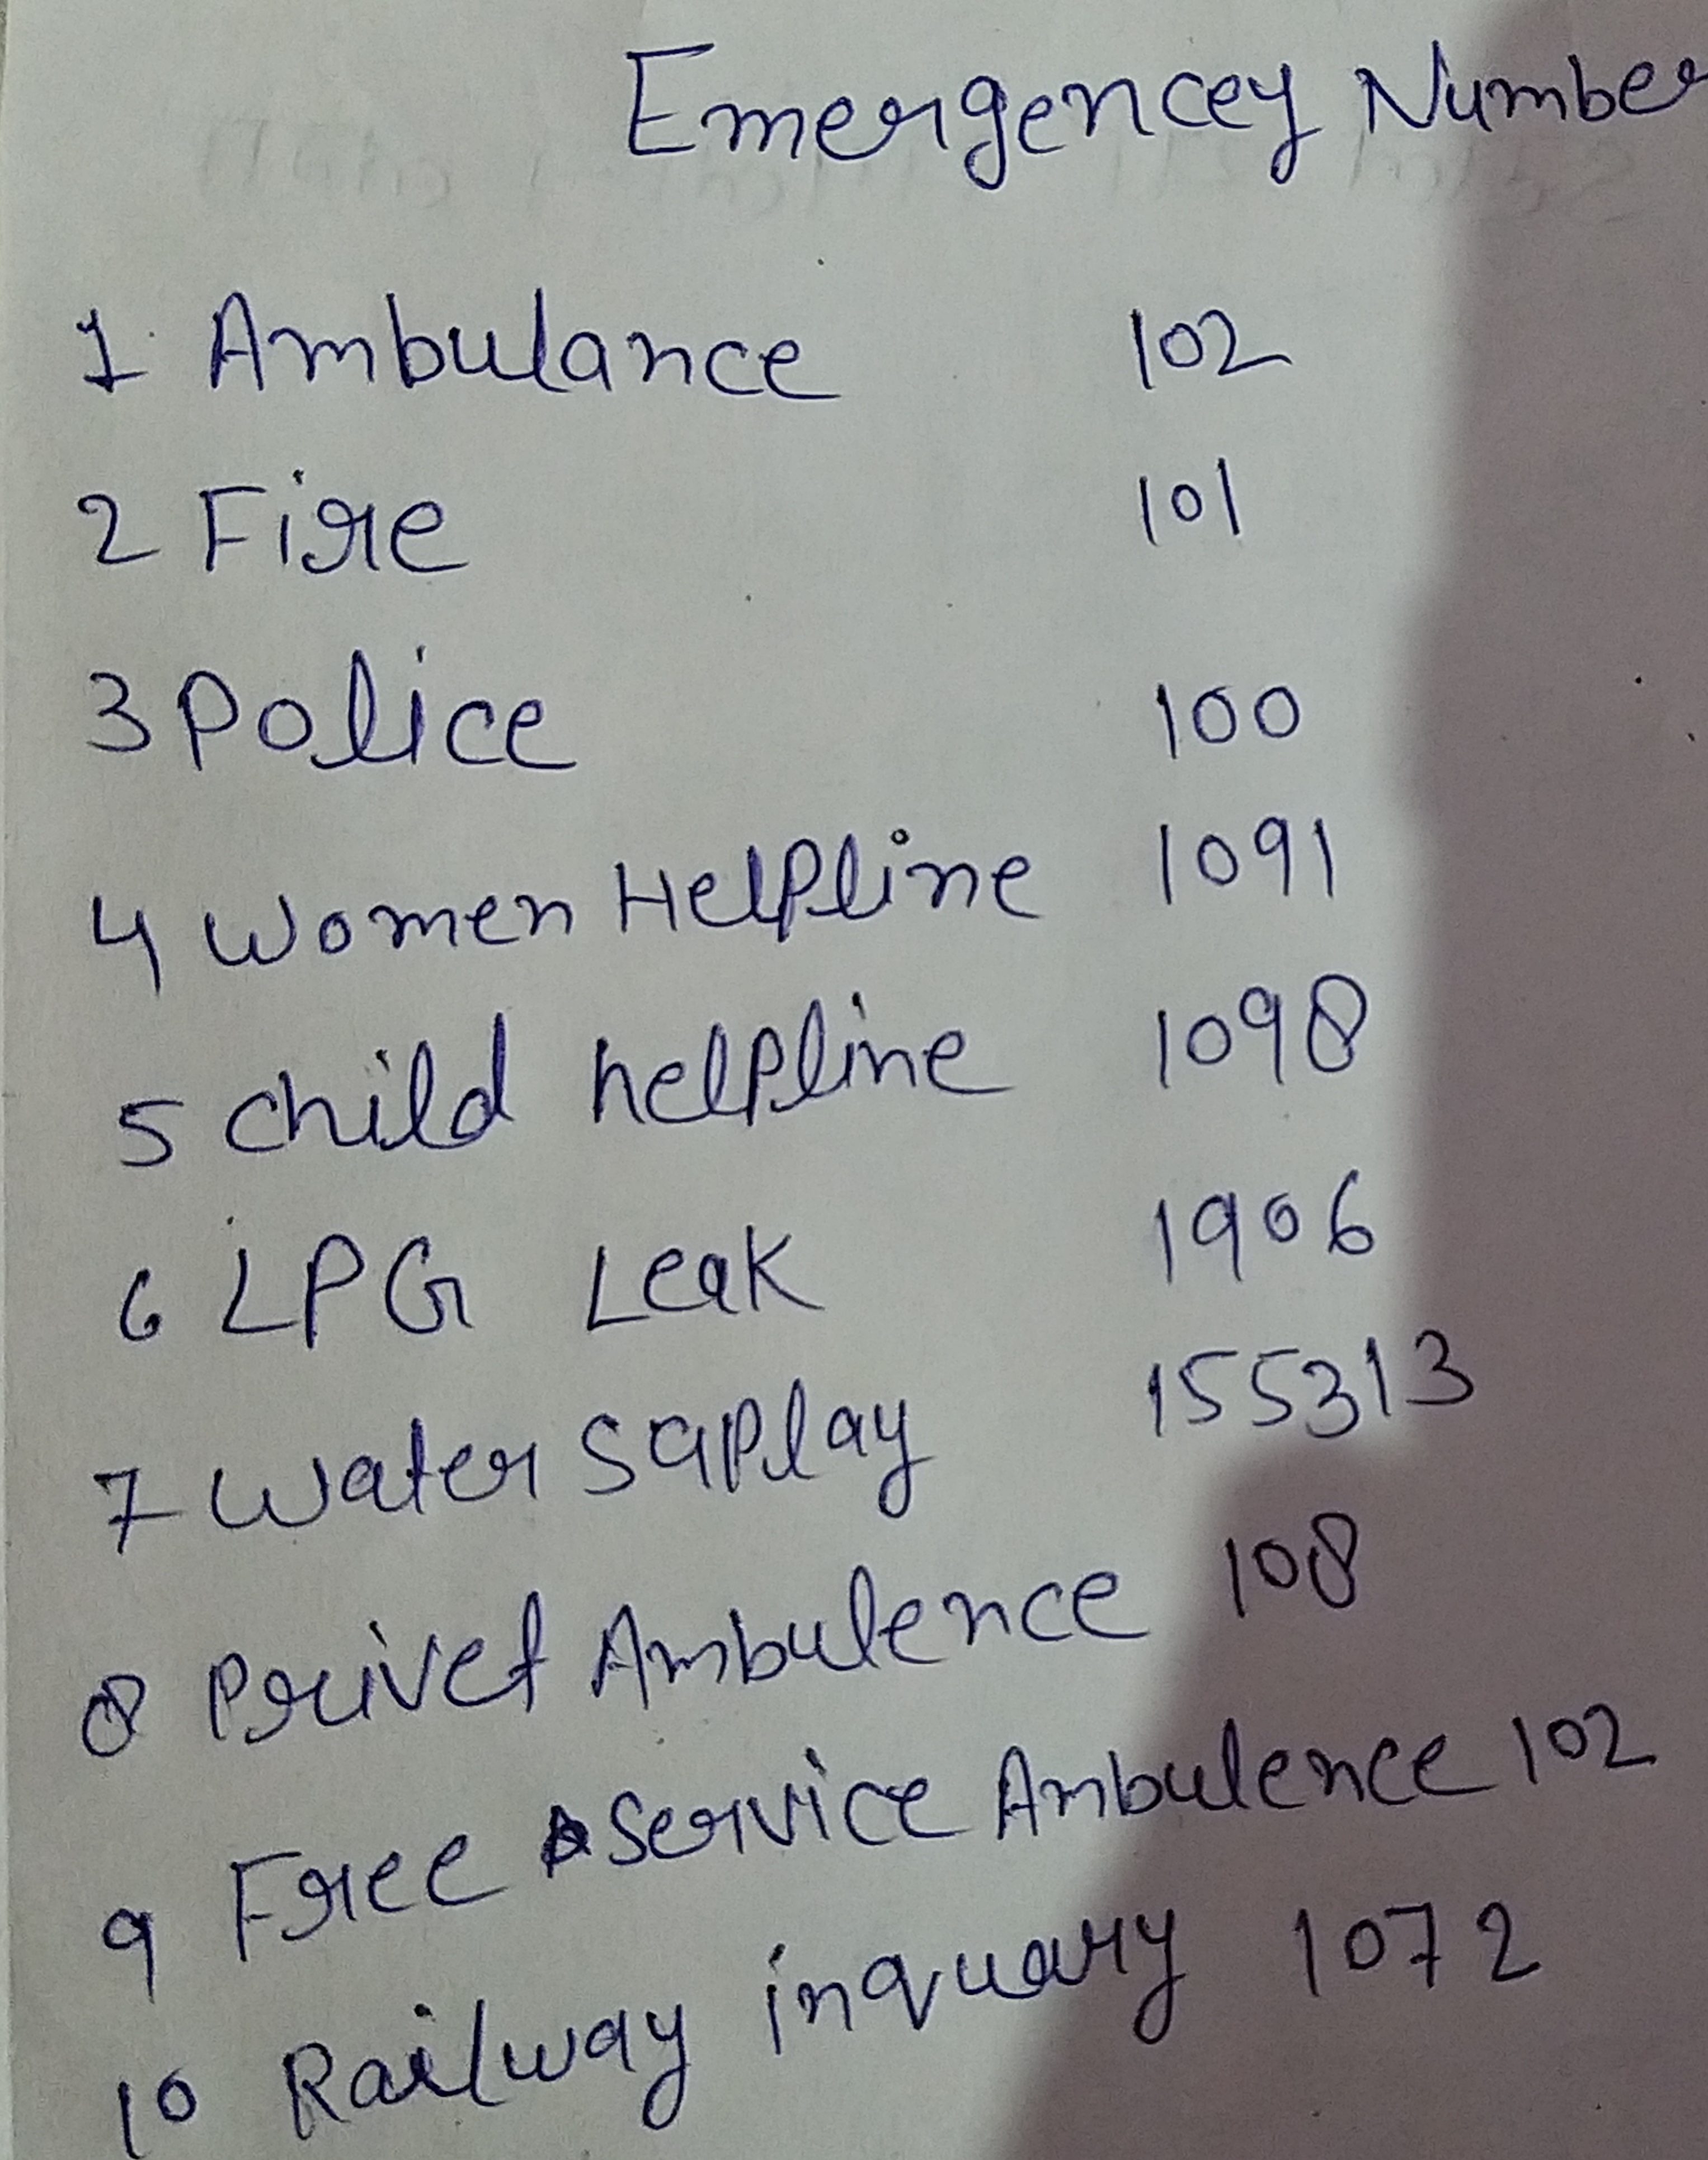 Emergencey Number
1. Ambulance 102
2 Fire 101
3 Police 100
4 Women Helpline 1091
5 child helpline 1098
6 LPG Leak 1906
7 Water Saplay 155313
8 Privet Ambulence 108
9 Free Service Ambulence 102
10 Railway inquary 1072